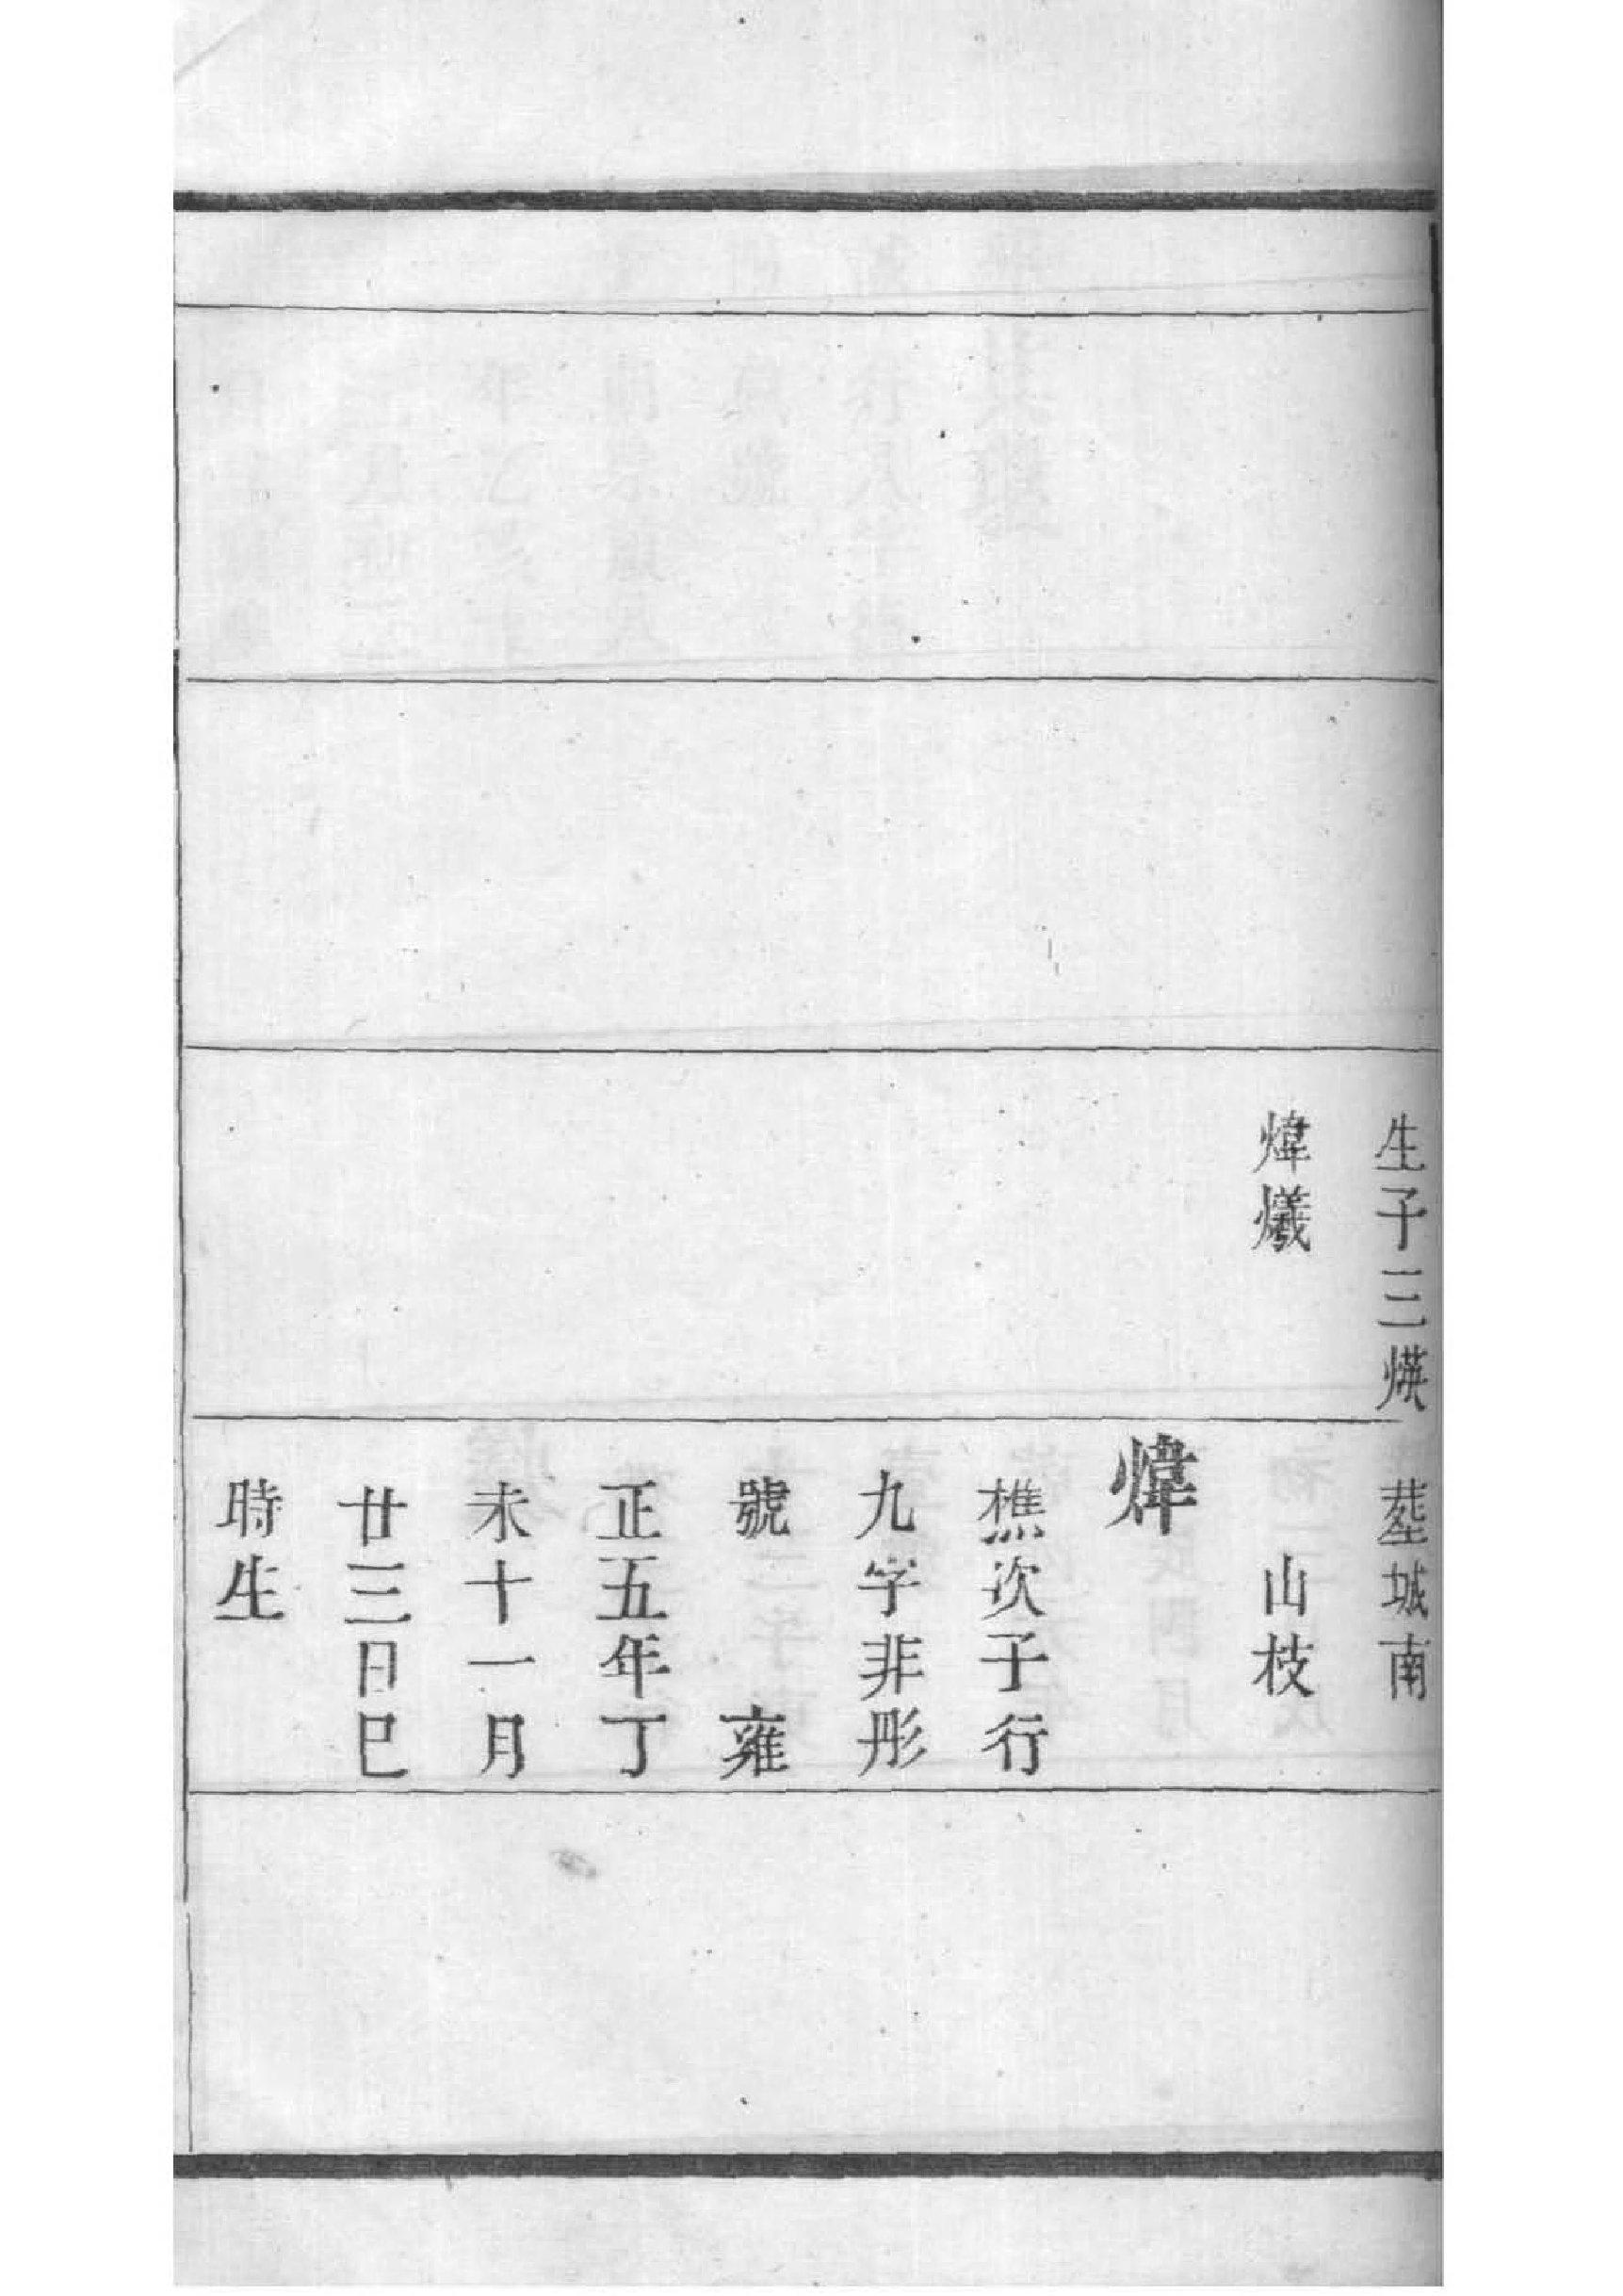 生子三煐
煒爔
葬城南
山枝
煒
樵次子行
九字非彤
號　雍
正五年丁
未十一月
廿三日巳
時生